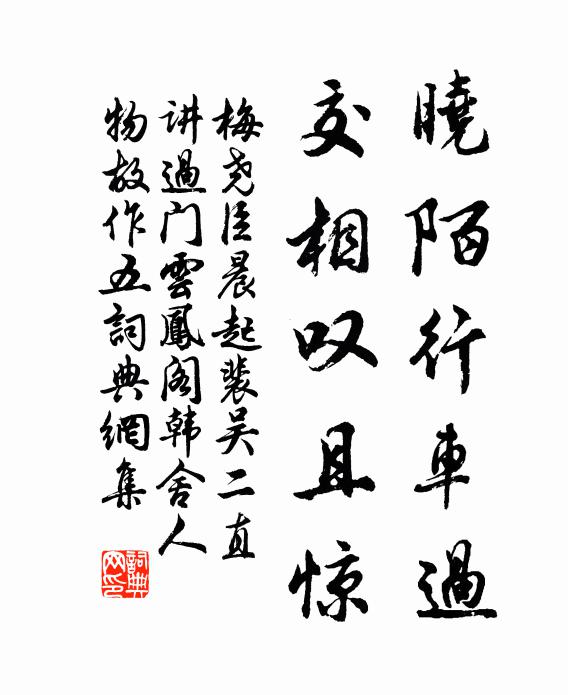 曉陌行車過
交相叹且惊
梅尧臣晨起裴吴二直
讲過门雲鳳阁韩舍人
物故作五詞典網集
詞典網印